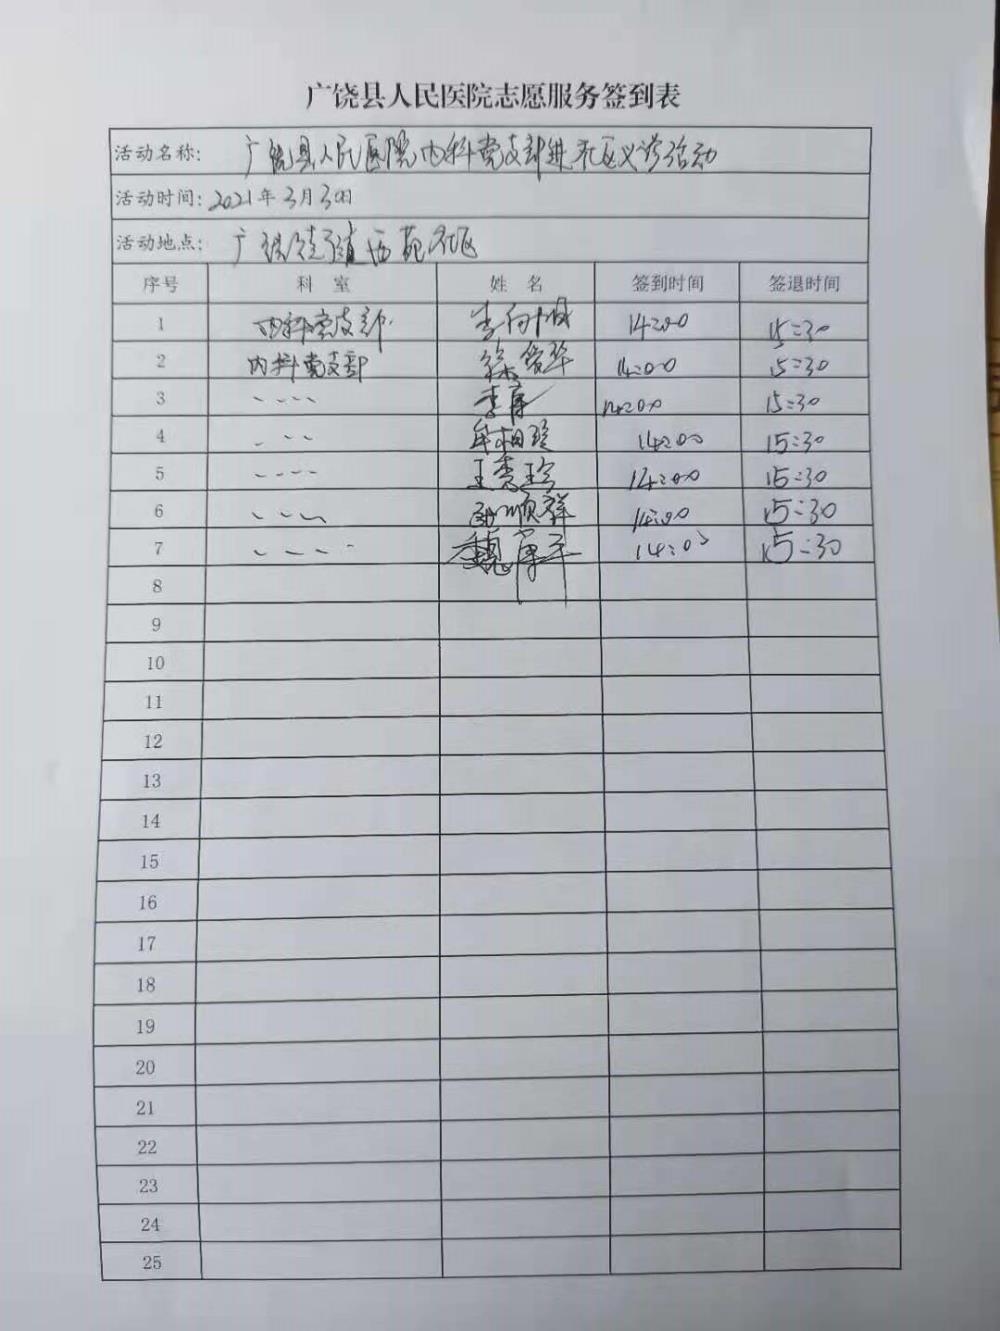 广饶县人民医院志愿服务签到表
活动名称: 广饶县人民医院内科党支部进社区义诊活动
活动时间: 2021年3月30日
活动地点: 广饶镇西苑社区
序号 科 室 姓 名 签到时间 签退时间
1 内科党支部 李向城 14:00 15:30
2 内科党支部 徐爱华 14:00 15:30
3 、、、、 李 14:00 15:30
4 、、、 牟相 14:00 15:30
5 、、、、 王秀玲 14:00 15:30
6 、、、 顺群 14:00 15:30
7 、、、、 魏军平 14:00 15:30
8
9
10
11
12
13
14
15
16
17
18
19
20
21
22
23
24
25